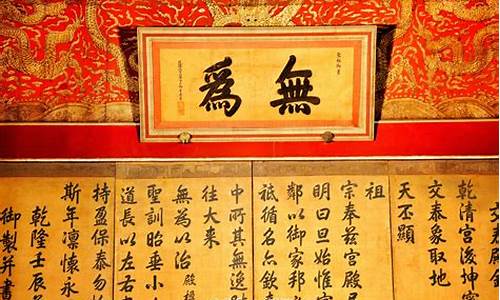 無為
乾清宮後坤寧
交泰象取地
天丕顯
祖
宗奉茲宮殿
明曰旦始惟
以御家邦
祗循名
中所其無逸
往大來
無為以治
聖訓昭垂小
道長以左右
持盈保泰勿
斯年凜懷永
乾隆壬辰
御製并書